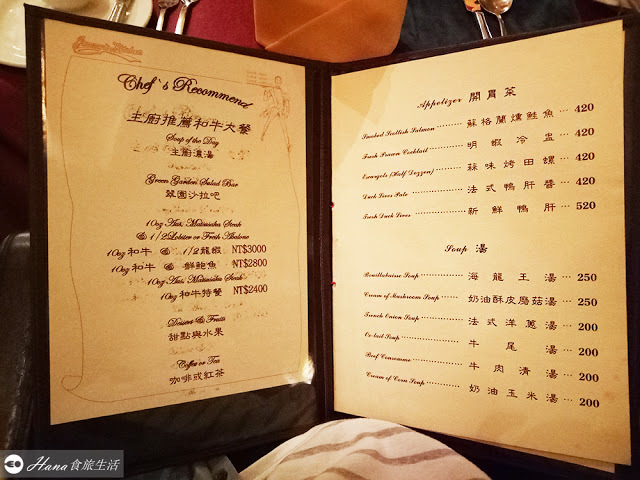 Chef's Recommend
主廚推薦和牛大餐
Soup of the Day
主廚濃湯
Green Garden Salad Bar
翠園沙拉吧
10oz Aus. Matusaka Steak
& 1/2 Lobster or Fresh Abalone
10oz 和牛 & 1/2龍蝦 NT$3000
10oz 和牛 & 鮮鮑魚 NT$2800
10oz Aus. Matusaka Steak
10oz 和牛特餐 NT$2400
Dessert & Fruits
甜點與水果
Coffee or Tea
咖啡或紅茶
Appetizer 開胃菜
Smoked Scottish Salmon 蘇格蘭燻鮭魚 420
Fresh Prawn Cocktail 明蝦冷盅 420
Escargots (Half Dozzen) 蒜味烤田螺 420
Duck Liver Pate 法式鴨肝醬 420
Fresh Duck Liver 新鮮鴨肝 520
Soup 湯
Bouillabaisse Soup 海龍王湯 250
Cream of Mushroom Soup 奶油酥皮磨菇湯 250
French Onion Soup 法式洋蔥湯 200
Ox-tail Soup 牛尾湯 200
Beef Consomme 牛肉清湯 200
Cream of Corn Soup 奶油玉米湯 200
Hana 食旅生活